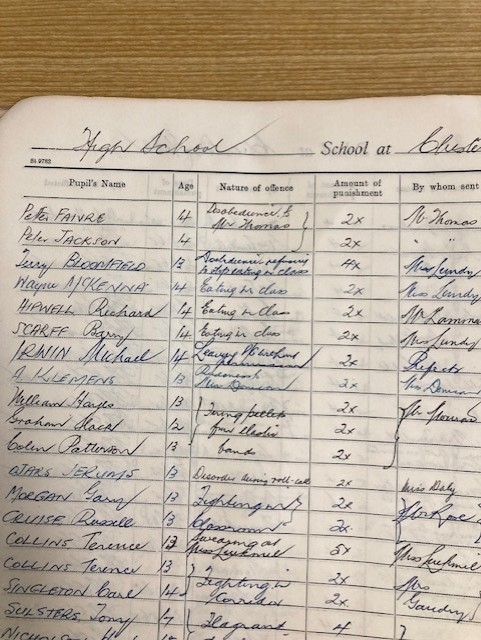 High School School at Cheste
S4 9763
Pupil's Name Age Nature of offence Amount of punishment By whom sent
Peter FAIVRE 14 Disobedience to Mr Thomas 2x Mr Thomas
Peter JACKSON 14 2x " "
Terry BLOOMFIELD 13 Disobedience refusing to stop eating in class 4x Miss Lundy
Wayne McKENNA 14 Eating in class 2x Miss Lundy
HIPWELL Richard 14 Eating in class 2x Mr
SCARFF Barry 14 Eating in class 2x Miss Lundy
IRWIN Michael 14 Leaving without permission 2x Prefects
A KLEMENS 13 Miss 2x Miss
William Hayes 13 Firing pellets 2x Mr
Graham 12 from elastic 2x
Colin Patterson 13 bands 2x
JERUMS 13 Disorder during roll-call 2x Miss Daly
MORGAN Gary 13 Fighting in 2x Mr Rowe
CRUISE Russell 13 Classroom 2x
COLLINS Terence 13 Swearing at Miss 3x Miss
COLLINS Terence 13 Fighting in 2x Mrs
SINGLETON Carl 14 Corridor 2x Gaudry
SULSTERS Tony Flagrant 4